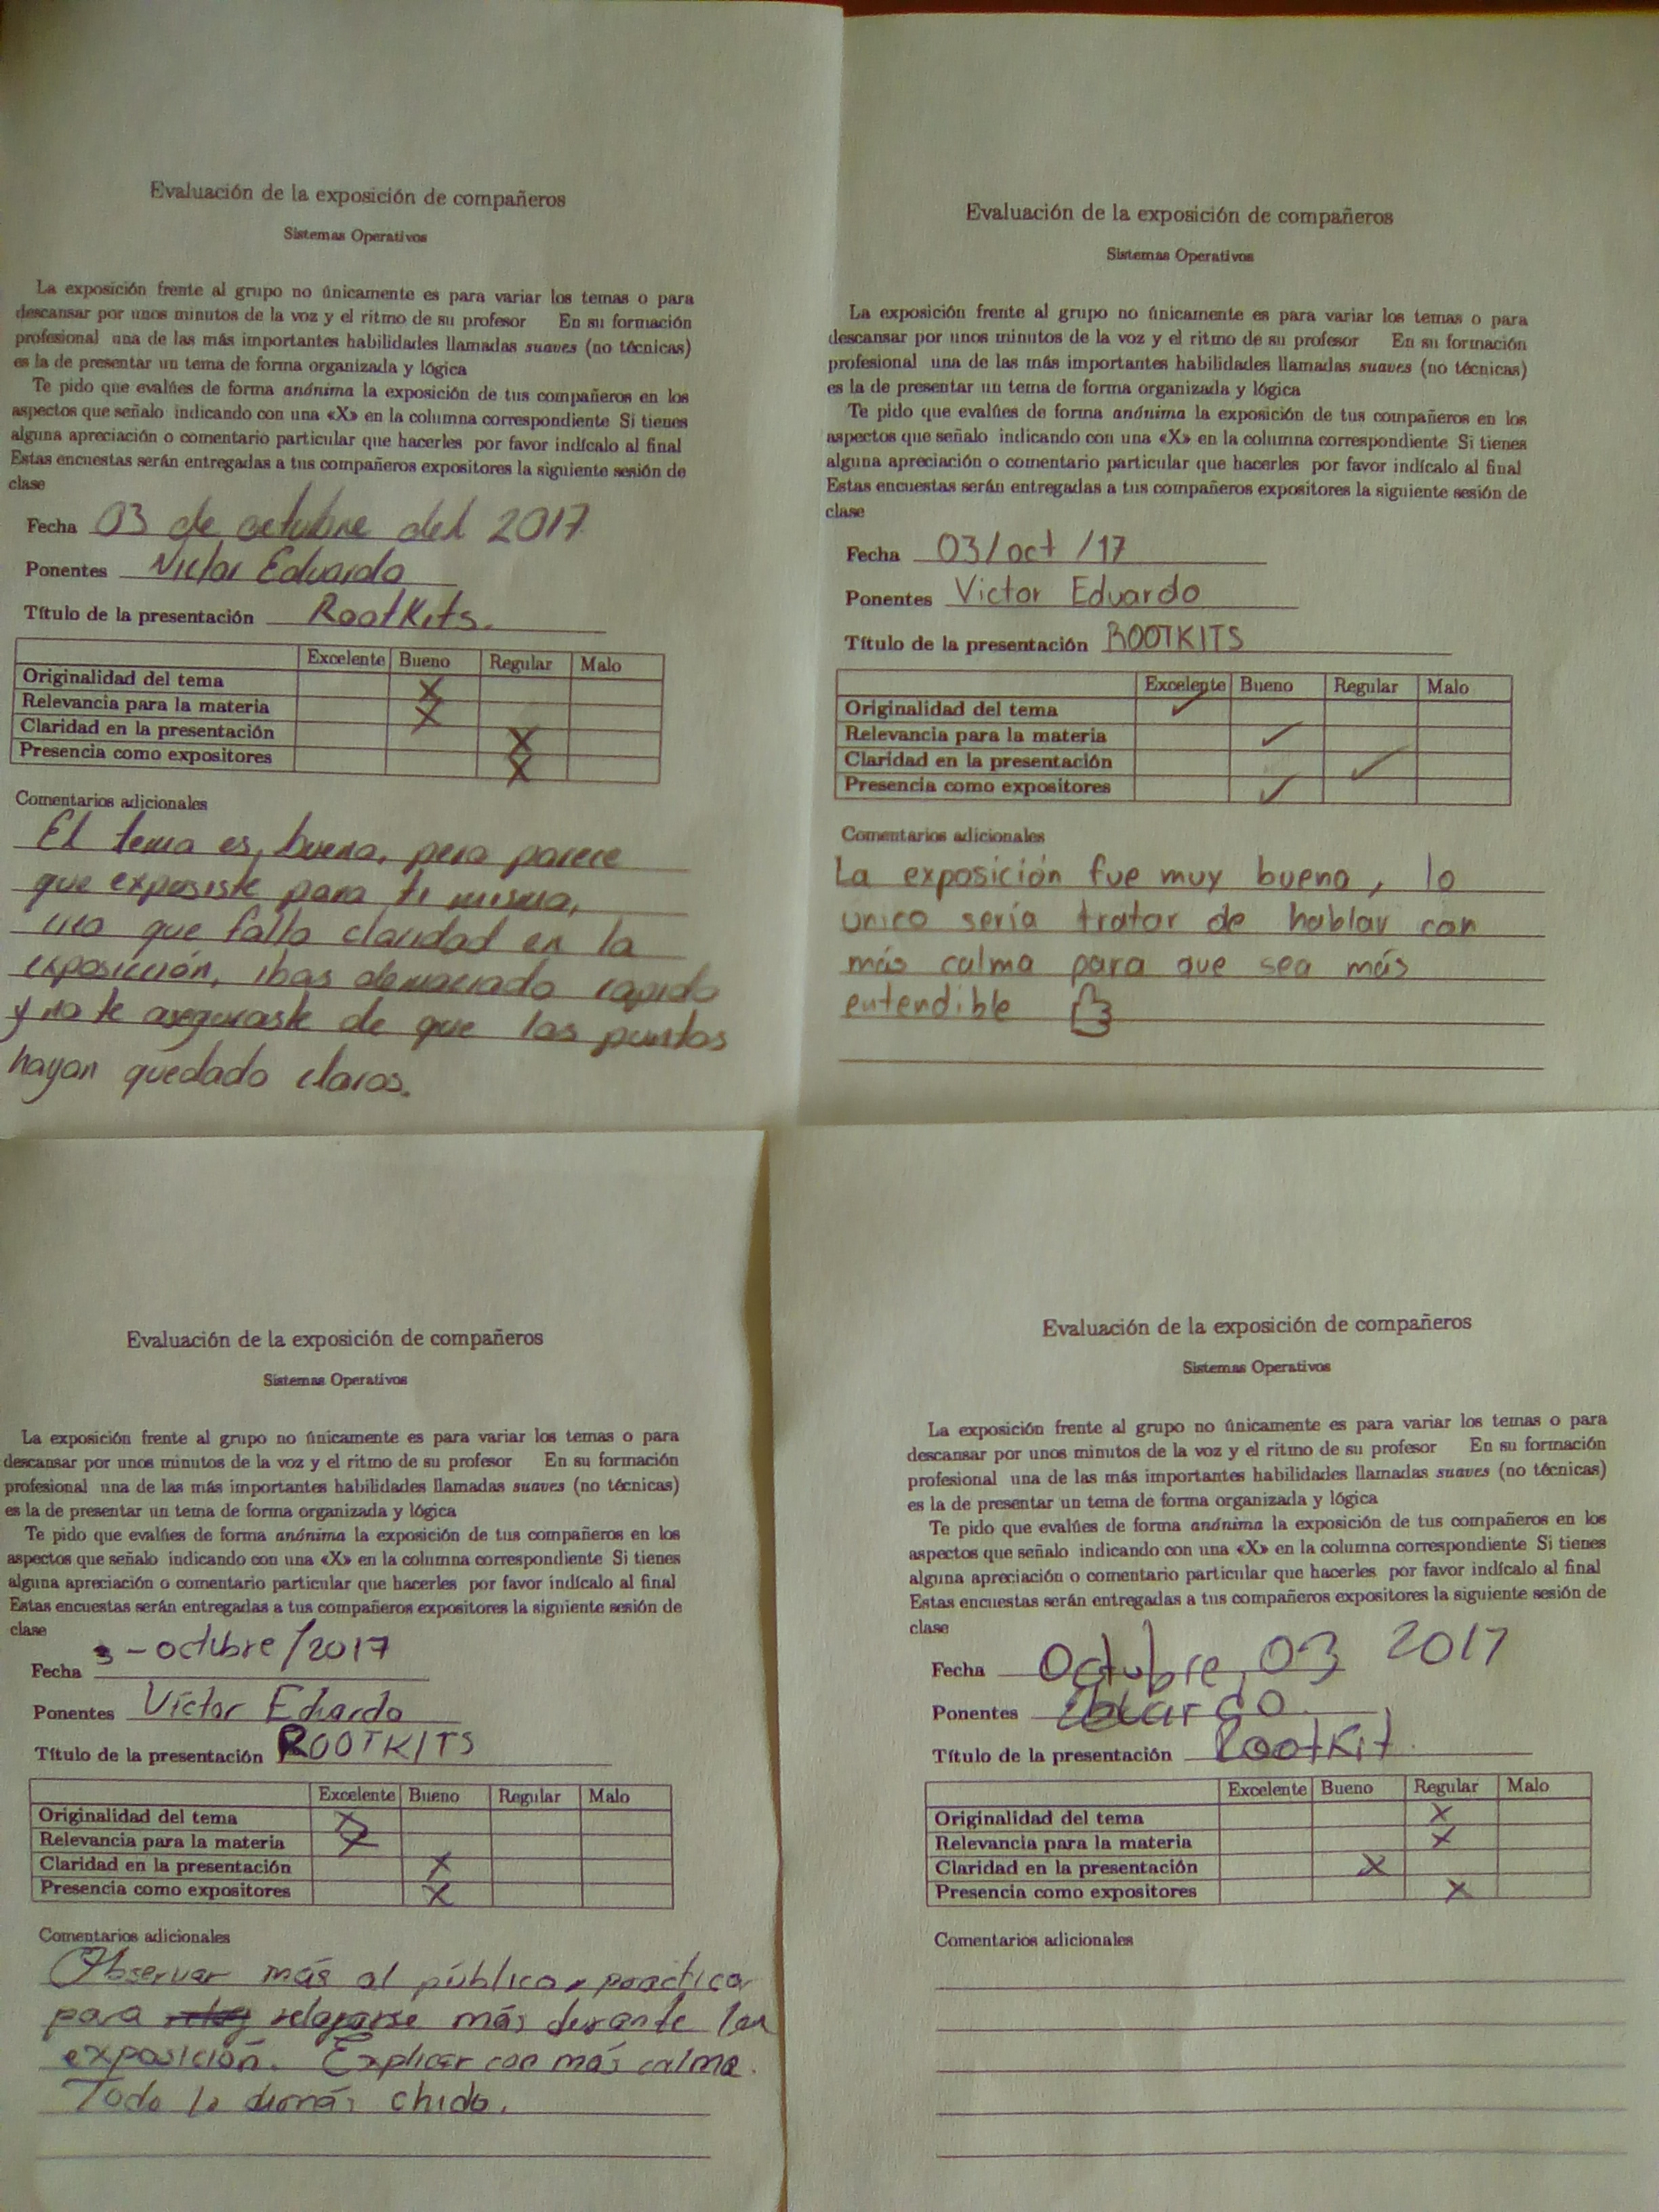 Evaluación de la exposición de compañeros
Sistemas Operativos
La exposición frente al grupo no únicamente es para variar los temas o para
descansar por unos minutos de la voz y el ritmo de su profesor En su formación
profesional una de las más importantes habilidades llamadas suaves (no técnicas)
es la de presentar un tema de forma organizada y lógica
Te pido que evalúes de forma anónima la exposición de tus compañeros en los
aspectos que señalo indicando con una «X» en la columna correspondiente Si tienes
alguna apreciación o comentario particular que hacerles por favor indícalo al final
Estas encuestas serán entregadas a tus compañeros expositores la siguiente sesión de
clase
Fecha 03 de octubre del 2017
Ponentes Victor Eduardo
Título de la presentación RootKits.
Excelente Bueno Regular Malo
Originalidad del tema X
Relevancia para la materia X
Claridad en la presentación X
Presencia como expositores X
Comentarios adicionales
El tema es bueno, pero parece
que exposiste para ti mismo,
creo que falto claridad en la
exposición, ibas demaciado rapido
y no te aseguraste de que los puntos
hayan quedado claros.
Evaluación de la exposición de compañeros
Sistemas Operativos
La exposición frente al grupo no únicamente es para variar los temas o para
descansar por unos minutos de la voz y el ritmo de su profesor En su formación
profesional una de las más importantes habilidades llamadas suaves (no técnicas)
es la de presentar un tema de forma organizada y lógica
Te pido que evalúes de forma anónima la exposición de tus compañeros en los
aspectos que señalo indicando con una «X» en la columna correspondiente Si tienes
alguna apreciación o comentario particular que hacerles por favor indícalo al final
Estas encuestas serán entregadas a tus compañeros expositores la siguiente sesión de
clase
Fecha 03/oct/17
Ponentes Victor Eduardo
Título de la presentación ROOTKITS
Excelente Bueno Regular Malo
Originalidad del tema ✓
Relevancia para la materia ✓
Claridad en la presentación ✓
Presencia como expositores ✓
Comentarios adicionales
La exposición fue muy buena, lo
unico sería tratar de hablar con
más calma para que sea más
entendible
Evaluación de la exposición de compañeros
Sistemas Operativos
La exposición frente al grupo no únicamente es para variar los temas o para
descansar por unos minutos de la voz y el ritmo de su profesor En su formación
profesional una de las más importantes habilidades llamadas suaves (no técnicas)
es la de presentar un tema de forma organizada y lógica
Te pido que evalúes de forma anónima la exposición de tus compañeros en los
aspectos que señalo indicando con una «X» en la columna correspondiente Si tienes
alguna apreciación o comentario particular que hacerles por favor indícalo al final
Estas encuestas serán entregadas a tus compañeros expositores la siguiente sesión de
clase
Fecha 3-octubre/2017
Ponentes Víctor Eduardo
Título de la presentación ROOTKITS
Excelente Bueno Regular Malo
Originalidad del tema X
Relevancia para la materia X
Claridad en la presentación X
Presencia como expositores X
Comentarios adicionales
Observar más al público, practicar
para relajarse más durante la
exposición. Explicar con más calma.
Todo lo demás chido.
Evaluación de la exposición de compañeros
Sistemas Operativos
La exposición frente al grupo no únicamente es para variar los temas o para
descansar por unos minutos de la voz y el ritmo de su profesor En su formación
profesional una de las más importantes habilidades llamadas suaves (no técnicas)
es la de presentar un tema de forma organizada y lógica
Te pido que evalúes de forma anónima la exposición de tus compañeros en los
aspectos que señalo indicando con una «X» en la columna correspondiente Si tienes
alguna apreciación o comentario particular que hacerles por favor indícalo al final
Estas encuestas serán entregadas a tus compañeros expositores la siguiente sesión de
clase
Fecha Octubre, 03 2017
Ponentes Eduardo
Título de la presentación RootKit.
Excelente Bueno Regular Malo
Originalidad del tema X
Relevancia para la materia X
Claridad en la presentación X
Presencia como expositores X
Comentarios adicionales